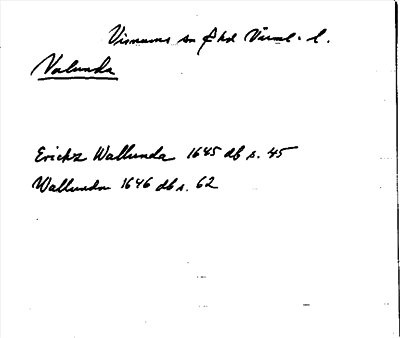 Visnums sn Ö hd Värml. l.
Valunda
Erickz Wallunda 1645 db s. 45
Wallunda 1646 db s. 62